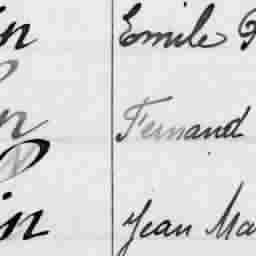 in Emile
n Fernand
in Jean Ma